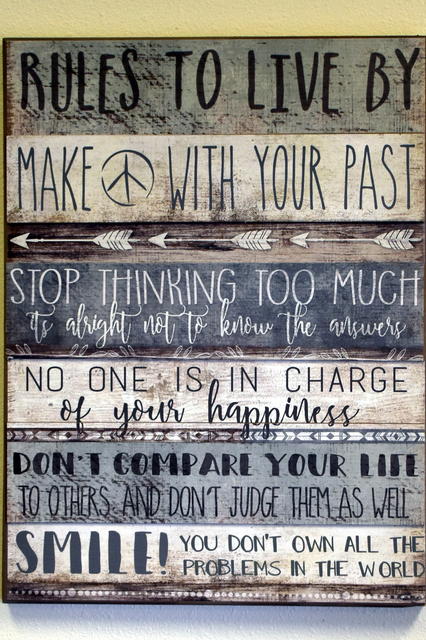 RULES TO LIVE BY
MAKE ☮ WITH YOUR PAST
STOP THINKING TOO MUCH
its alright not to know the answers
NO ONE IS IN CHARGE
of your happiness
DON'T COMPARE YOUR LIFE
TO OTHERS AND DON'T JUDGE THEM AS WELL
SMILE! YOU DON'T OWN ALL THE
PROBLEMS IN THE WORLD